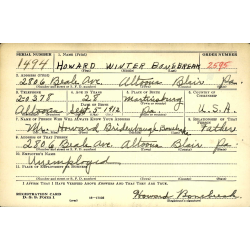 SERIAL NUMBER 1. NAME (Print) ORDER NUMBER
1494 HOWARD WINTER BONEBREAK 2595
(First) (Middle) (Last)
2. ADDRESS (Print)
2806 Beale Ave. Altoona Blair Pa.
3. TELEPHONE 4. AGE IN YEARS 5. PLACE OF BIRTH 6. COUNTRY OF CITIZENSHIP
2-0378 28 Martinsburg
DATE OF BIRTH
Altoona Sept. 5 1912 Pa. U.S.A.
7. NAME OF PERSON WHO WILL ALWAYS KNOW YOUR ADDRESS 8. RELATIONSHIP OF THAT PERSON
Mr. Howard Bridenbaugh Father
9. ADDRESS OF THAT PERSON
2806 Beale Ave. Altoona Blair Pa.
10. EMPLOYER'S NAME
Unemployed
11. PLACE OF EMPLOYMENT OR BUSINESS
I AFFIRM THAT I HAVE VERIFIED ABOVE ANSWERS AND THAT THEY ARE TRUE.
REGISTRATION CARD
D. S. S. FORM 1
Howard Bonebreak